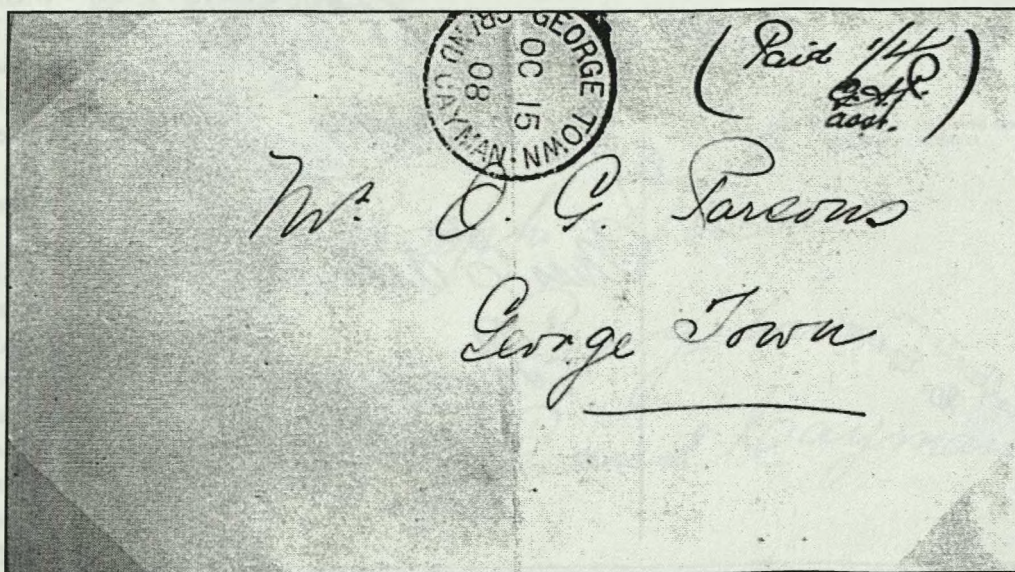 GEORGE TOWN · GRAND CAYMAN
OC 15
08
(Paid 1/4
G.A.P.
asst.)
Mr. O. G. Parsons
George Town